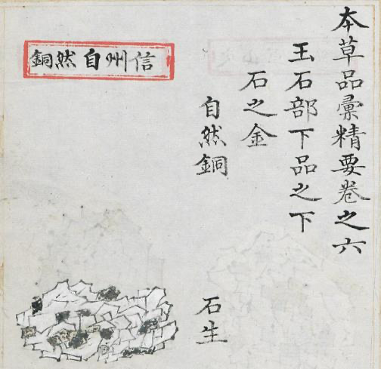 本草品彙精要卷之六
玉石部下品之下
石之金
自然銅
石生
信州自然銅